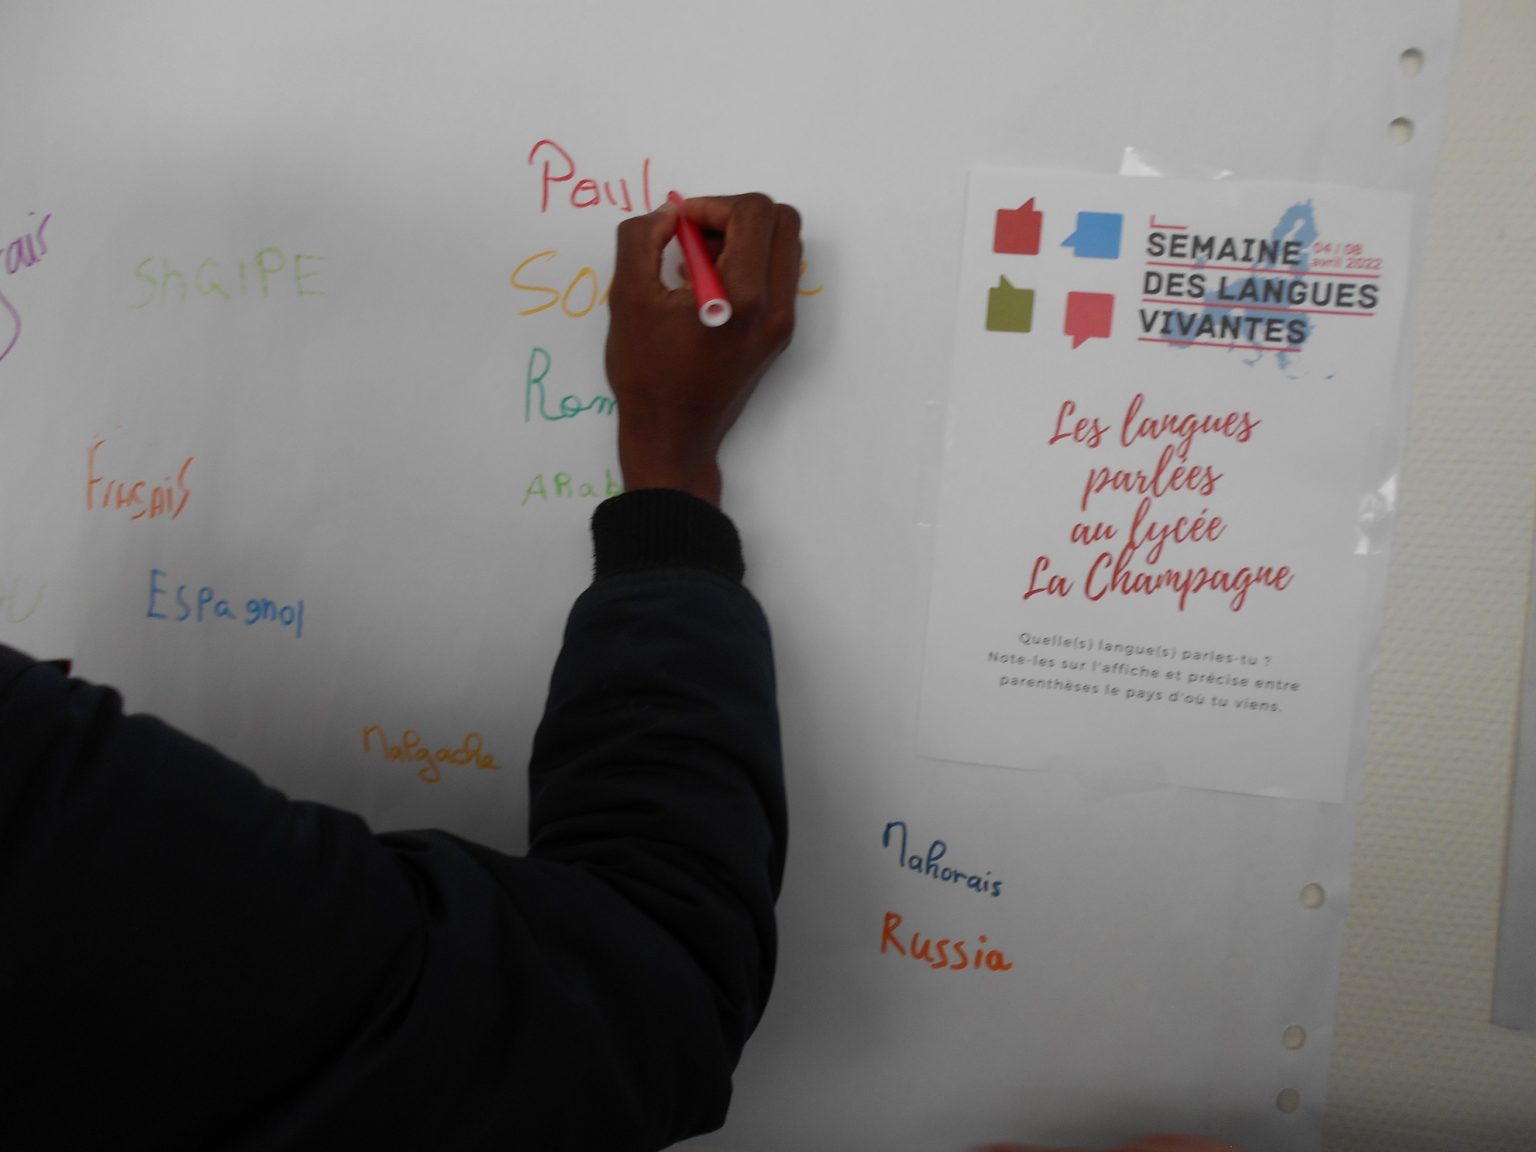 Poul
SHQIPE
ARab
Fraçais
Espagnol
Malgache
Mahorais
Russia
SEMAINE
04 / 08
avril 2022
DES LANGUES
VIVANTES
Les langues
parlées
au lycée
La Champagne
Quelle(s) langue(s) parles-tu ?
Note-les sur l'affiche et précise entre
parenthèses le pays d'où tu viens.